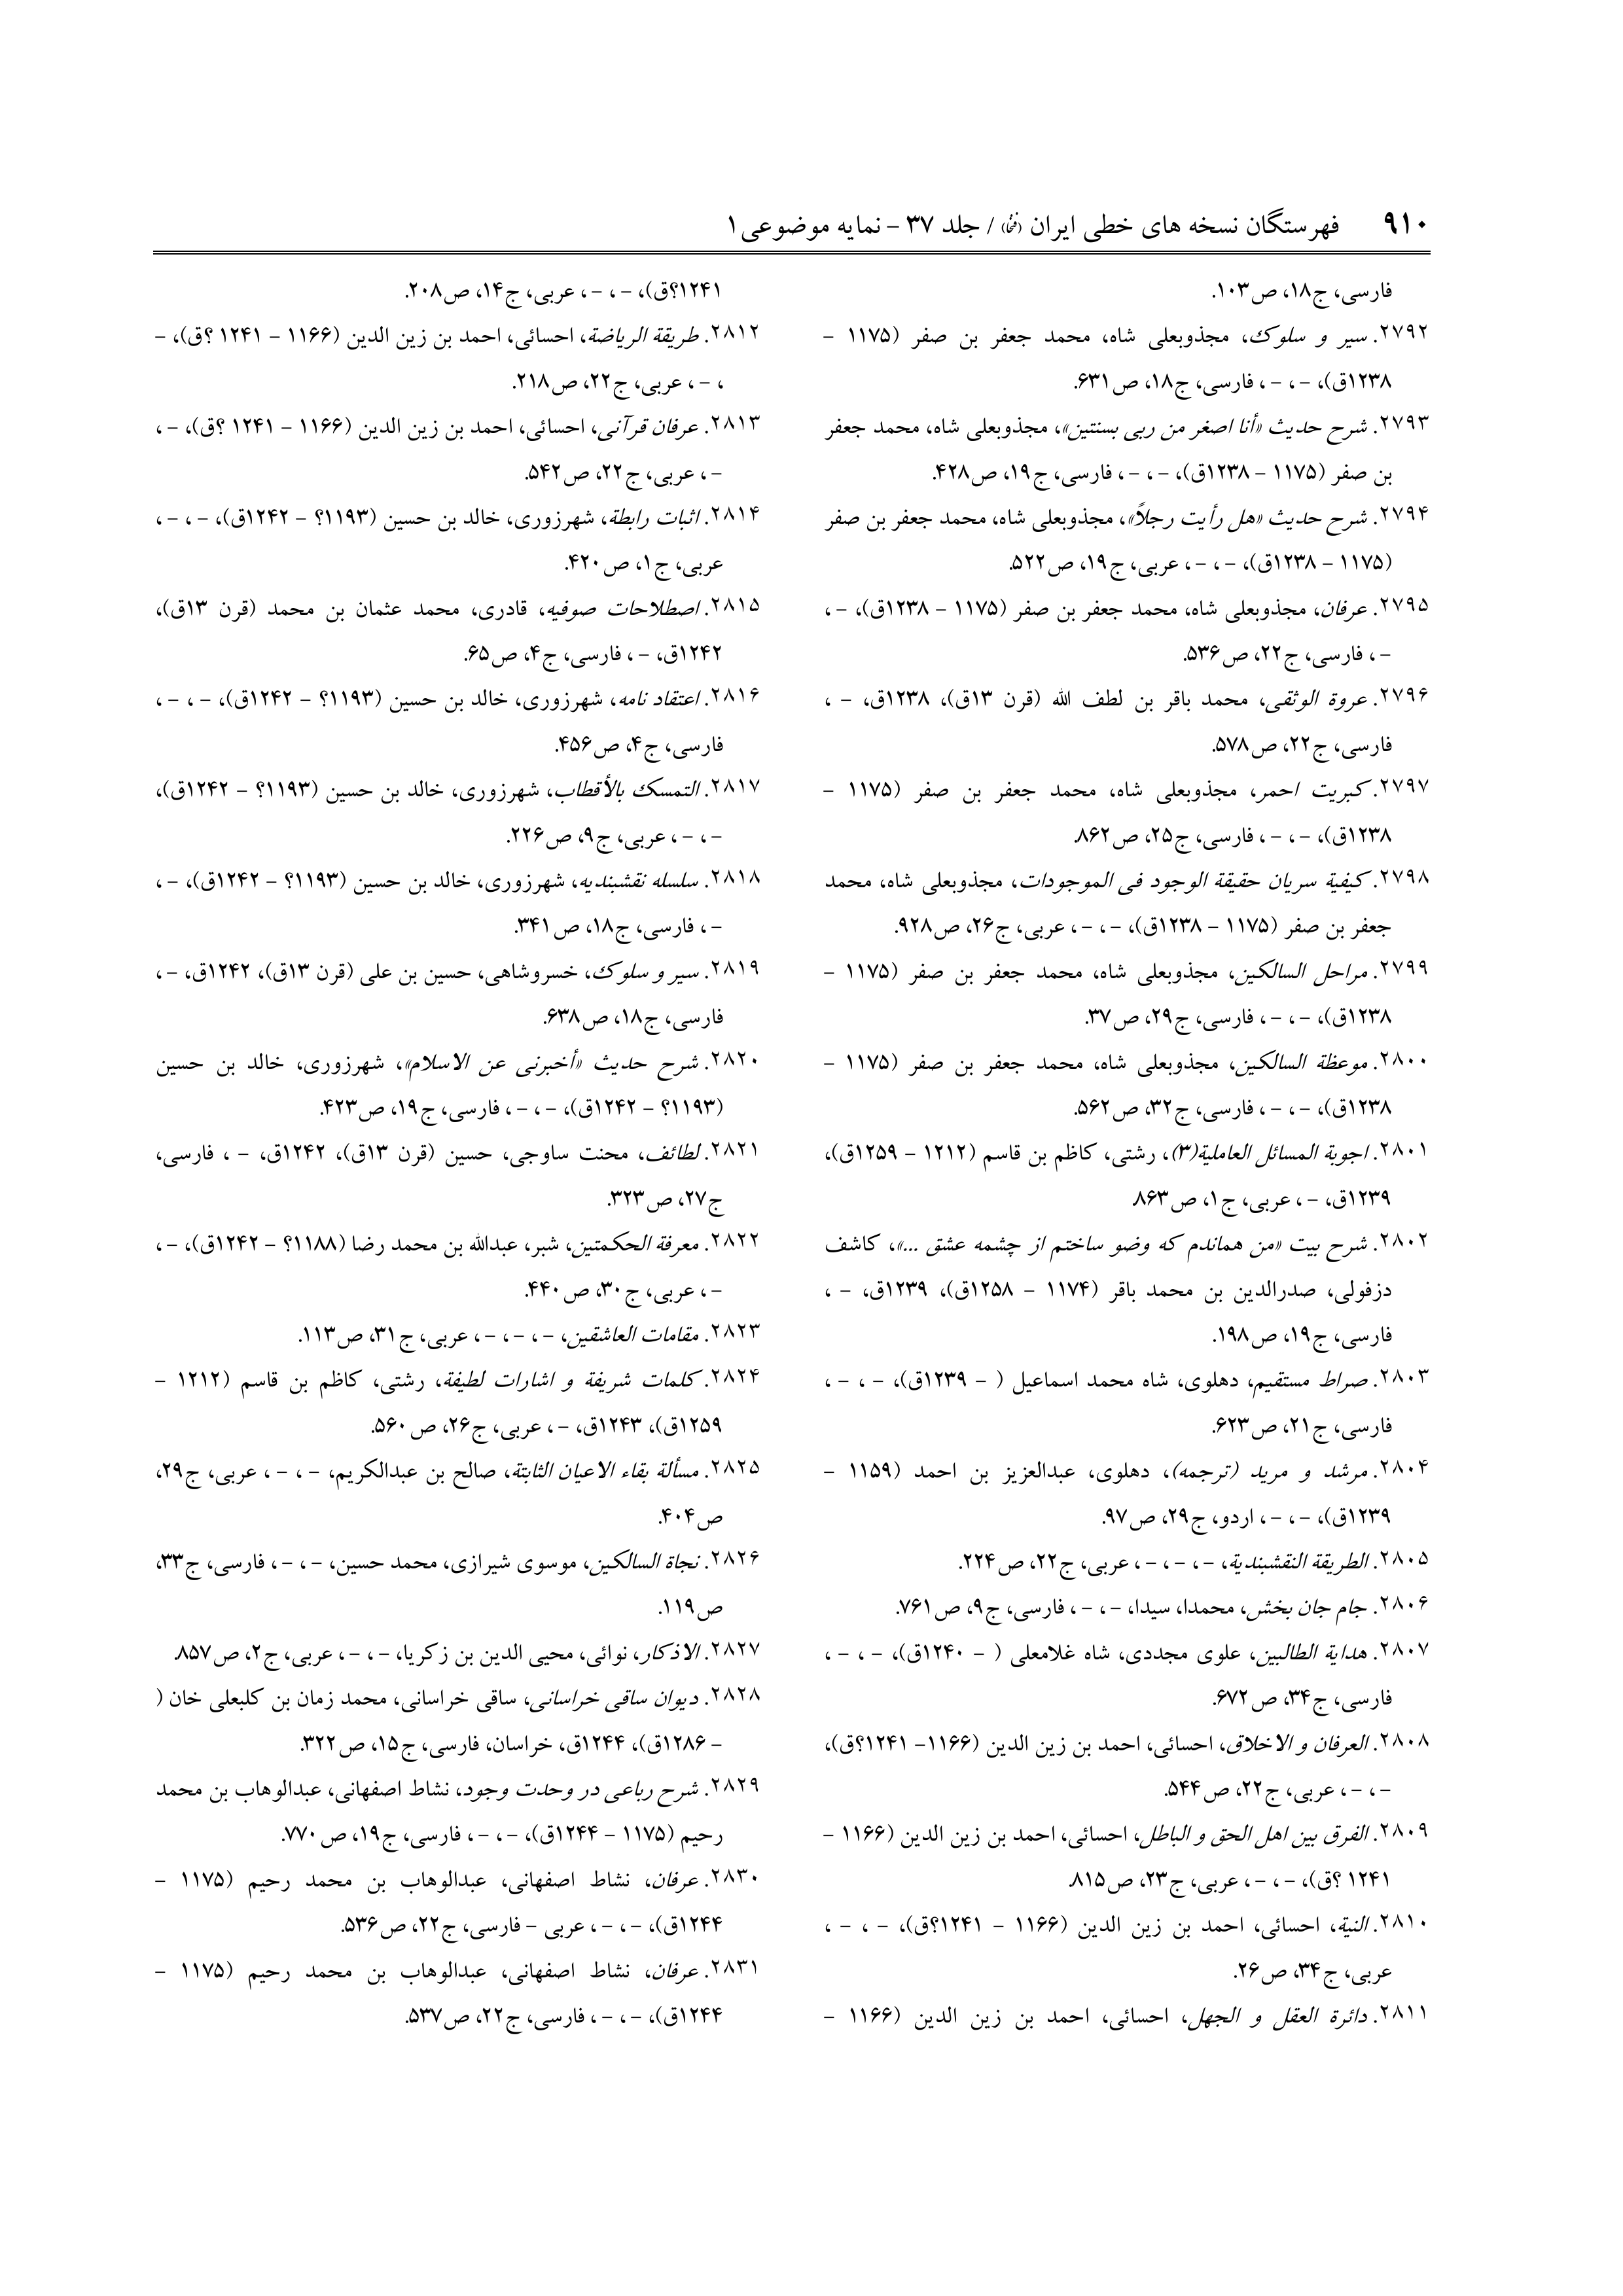 ۹۱۰ فهرستگان نسخه های خطی ایران (فنخا) / جلد ۳۷ - نمایه موضوعی۱
فارسی، ج۱۸، ص۱۰۳.
۲۷۹۲. سیر و سلوک، مجذوبعلی شاه، محمد جعفر بن صفر (۱۱۷۵ -
۱۲۳۸ق)، -، -، فارسی، ج۱۸، ص۶۳۱.
۲۷۹۳. شرح حدیث «أنا اصغر من ربی بسنتین»، مجذوبعلی شاه، محمد جعفر
بن صفر (۱۱۷۵ - ۱۲۳۸ق)، -، -، فارسی، ج۱۹، ص۴۲۸.
۲۷۹۴. شرح حدیث «هل رأیت رجلاً»، مجذوبعلی شاه، محمد جعفر بن صفر
(۱۱۷۵ - ۱۲۳۸ق)، -، -، عربی، ج۱۹، ص۵۲۲.
۲۷۹۵. عرفان، مجذوبعلی شاه، محمد جعفر بن صفر (۱۱۷۵ - ۱۲۳۸ق)، -،
-، فارسی، ج۲۲، ص۵۳۶.
۲۷۹۶. عروة الوثقی، محمد باقر بن لطف الله (قرن ۱۳ق)، ۱۲۳۸ق، -،
فارسی، ج۲۲، ص۵۷۸.
۲۷۹۷. کبریت احمر، مجذوبعلی شاه، محمد جعفر بن صفر (۱۱۷۵ -
۱۲۳۸ق)، -، -، فارسی، ج۲۵، ص۸۶۲.
۲۷۹۸. کیفیة سریان حقیقة الوجود فی الموجودات، مجذوبعلی شاه، محمد
جعفر بن صفر (۱۱۷۵ - ۱۲۳۸ق)، -، -، عربی، ج۲۶، ص۹۲۸.
۲۷۹۹. مراحل السالکین، مجذوبعلی شاه، محمد جعفر بن صفر (۱۱۷۵ -
۱۲۳۸ق)، -، -، فارسی، ج۲۹، ص۳۷.
۲۸۰۰. موعظة السالکین، مجذوبعلی شاه، محمد جعفر بن صفر (۱۱۷۵ -
۱۲۳۸ق)، -، -، فارسی، ج۳۲، ص۵۶۲.
۲۸۰۱. اجوبة المسائل العاملیة(۳)، رشتی، کاظم بن قاسم (۱۲۱۲ - ۱۲۵۹ق)،
۱۲۳۹ق، -، عربی، ج۱، ص۸۶۳.
۲۸۰۲. شرح بیت «من هماندم که وضو ساختم از چشمه عشق ...»، کاشف
دزفولی، صدرالدین بن محمد باقر (۱۱۷۴ - ۱۲۵۸ق)، ۱۲۳۹ق، -،
فارسی، ج۱۹، ص۱۹۸.
۲۸۰۳. صراط مستقیم، دهلوی، شاه محمد اسماعیل ( - ۱۲۳۹ق)، -، -،
فارسی، ج۲۱، ص۶۲۳.
۲۸۰۴. مرشد و مرید (ترجمه)، دهلوی، عبدالعزیز بن احمد (۱۱۵۹ -
۱۲۳۹ق)، -، -، اردو، ج۲۹، ص۹۷.
۲۸۰۵. الطریقة النقشبندیة، -، -، -، عربی، ج۲۲، ص۲۲۴.
۲۸۰۶. جام جان بخش، محمدا، سیدا، -، -، فارسی، ج۹، ص۷۶۱.
۲۸۰۷. هدایة الطالبین، علوی مجددی، شاه غلامعلی ( - ۱۲۴۰ق)، -، -،
فارسی، ج۳۴، ص۶۷۲.
۲۸۰۸. العرفان و الاخلاق، احسائی، احمد بن زین الدین (۱۱۶۶- ۱۲۴۱؟ق)،
-، -، عربی، ج۲۲، ص۵۴۴.
۲۸۰۹. الفرق بین اهل الحق و الباطل، احسائی، احمد بن زین الدین (۱۱۶۶ -
۱۲۴۱ ؟ق)، -، -، عربی، ج۲۳، ص۸۱۵.
۲۸۱۰. النیة، احسائی، احمد بن زین الدین (۱۱۶۶ - ۱۲۴۱؟ق)، -، -،
عربی، ج۳۴، ص۲۶.
۲۸۱۱. دائرة العقل و الجهل، احسائی، احمد بن زین الدین (۱۱۶۶ -
۱۲۴۱؟ق)، -، -، عربی، ج۱۴، ص۲۰۸.
۲۸۱۲. طریقة الریاضة، احسائی، احمد بن زین الدین (۱۱۶۶ - ۱۲۴۱ ؟ق)، -
، -، عربی، ج۲۲، ص۲۱۸.
۲۸۱۳. عرفان قرآنی، احسائی، احمد بن زین الدین (۱۱۶۶ - ۱۲۴۱ ؟ق)، -،
-، عربی، ج۲۲، ص۵۴۲.
۲۸۱۴. اثبات رابطة، شهرزوری، خالد بن حسین (۱۱۹۳؟ - ۱۲۴۲ق)، -، -،
عربی، ج۱، ص۴۲۰.
۲۸۱۵. اصطلاحات صوفیه، قادری، محمد عثمان بن محمد (قرن ۱۳ق)،
۱۲۴۲ق، -، فارسی، ج۴، ص۶۵.
۲۸۱۶. اعتقاد نامه، شهرزوری، خالد بن حسین (۱۱۹۳؟ - ۱۲۴۲ق)، -، -،
فارسی، ج۴، ص۴۵۶.
۲۸۱۷. التمسک بالأقطاب، شهرزوری، خالد بن حسین (۱۱۹۳؟ - ۱۲۴۲ق)،
-، -، عربی، ج۹، ص۲۲۶.
۲۸۱۸. سلسله نقشبندیه، شهرزوری، خالد بن حسین (۱۱۹۳؟ - ۱۲۴۲ق)، -،
-، فارسی، ج۱۸، ص۳۴۱.
۲۸۱۹. سیر و سلوک، خسروشاهی، حسین بن علی (قرن ۱۳ق)، ۱۲۴۲ق، -،
فارسی، ج۱۸، ص۶۳۸.
۲۸۲۰. شرح حدیث «أخبرنی عن الاسلام»، شهرزوری، خالد بن حسین
(۱۱۹۳؟ - ۱۲۴۲ق)، -، -، فارسی، ج۱۹، ص۴۲۳.
۲۸۲۱. لطائف، محنت ساوجی، حسین (قرن ۱۳ق)، ۱۲۴۲ق، -، فارسی،
ج۲۷، ص۳۲۳.
۲۸۲۲. معرفة الحکمتین، شبر، عبدالله بن محمد رضا (۱۱۸۸؟ - ۱۲۴۲ق)، -،
-، عربی، ج۳۰، ص۴۴۰.
۲۸۲۳. مقامات العاشقین، -، -، -، عربی، ج۳۱، ص۱۱۳.
۲۸۲۴. کلمات شریفة و اشارات لطیفة، رشتی، کاظم بن قاسم (۱۲۱۲ -
۱۲۵۹ق)، ۱۲۴۳ق، -، عربی، ج۲۶، ص۵۶۰.
۲۸۲۵. مسألة بقاء الاعیان الثابتة، صالح بن عبدالکریم، -، -، عربی، ج۲۹،
ص۴۰۴.
۲۸۲۶. نجاة السالکین، موسوی شیرازی، محمد حسین، -، -، فارسی، ج۳۳،
ص۱۱۹.
۲۸۲۷. الاذکار، نوائی، محیی الدین بن زکریا، -، -، عربی، ج۲، ص۸۵۷.
۲۸۲۸. دیوان ساقی خراسانی، ساقی خراسانی، محمد زمان بن کلبعلی خان (
- ۱۲۸۶ق)، ۱۲۴۴ق، خراسان، فارسی، ج۱۵، ص۳۲۲.
۲۸۲۹. شرح رباعی در وحدت وجود، نشاط اصفهانی، عبدالوهاب بن محمد
رحیم (۱۱۷۵ - ۱۲۴۴ق)، -، -، فارسی، ج۱۹، ص۷۷۰.
۲۸۳۰. عرفان، نشاط اصفهانی، عبدالوهاب بن محمد رحیم (۱۱۷۵ -
۱۲۴۴ق)، -، -، عربی - فارسی، ج۲۲، ص۵۳۶.
۲۸۳۱. عرفان، نشاط اصفهانی، عبدالوهاب بن محمد رحیم (۱۱۷۵ -
۱۲۴۴ق)، -، -، فارسی، ج۲۲، ص۵۳۷.